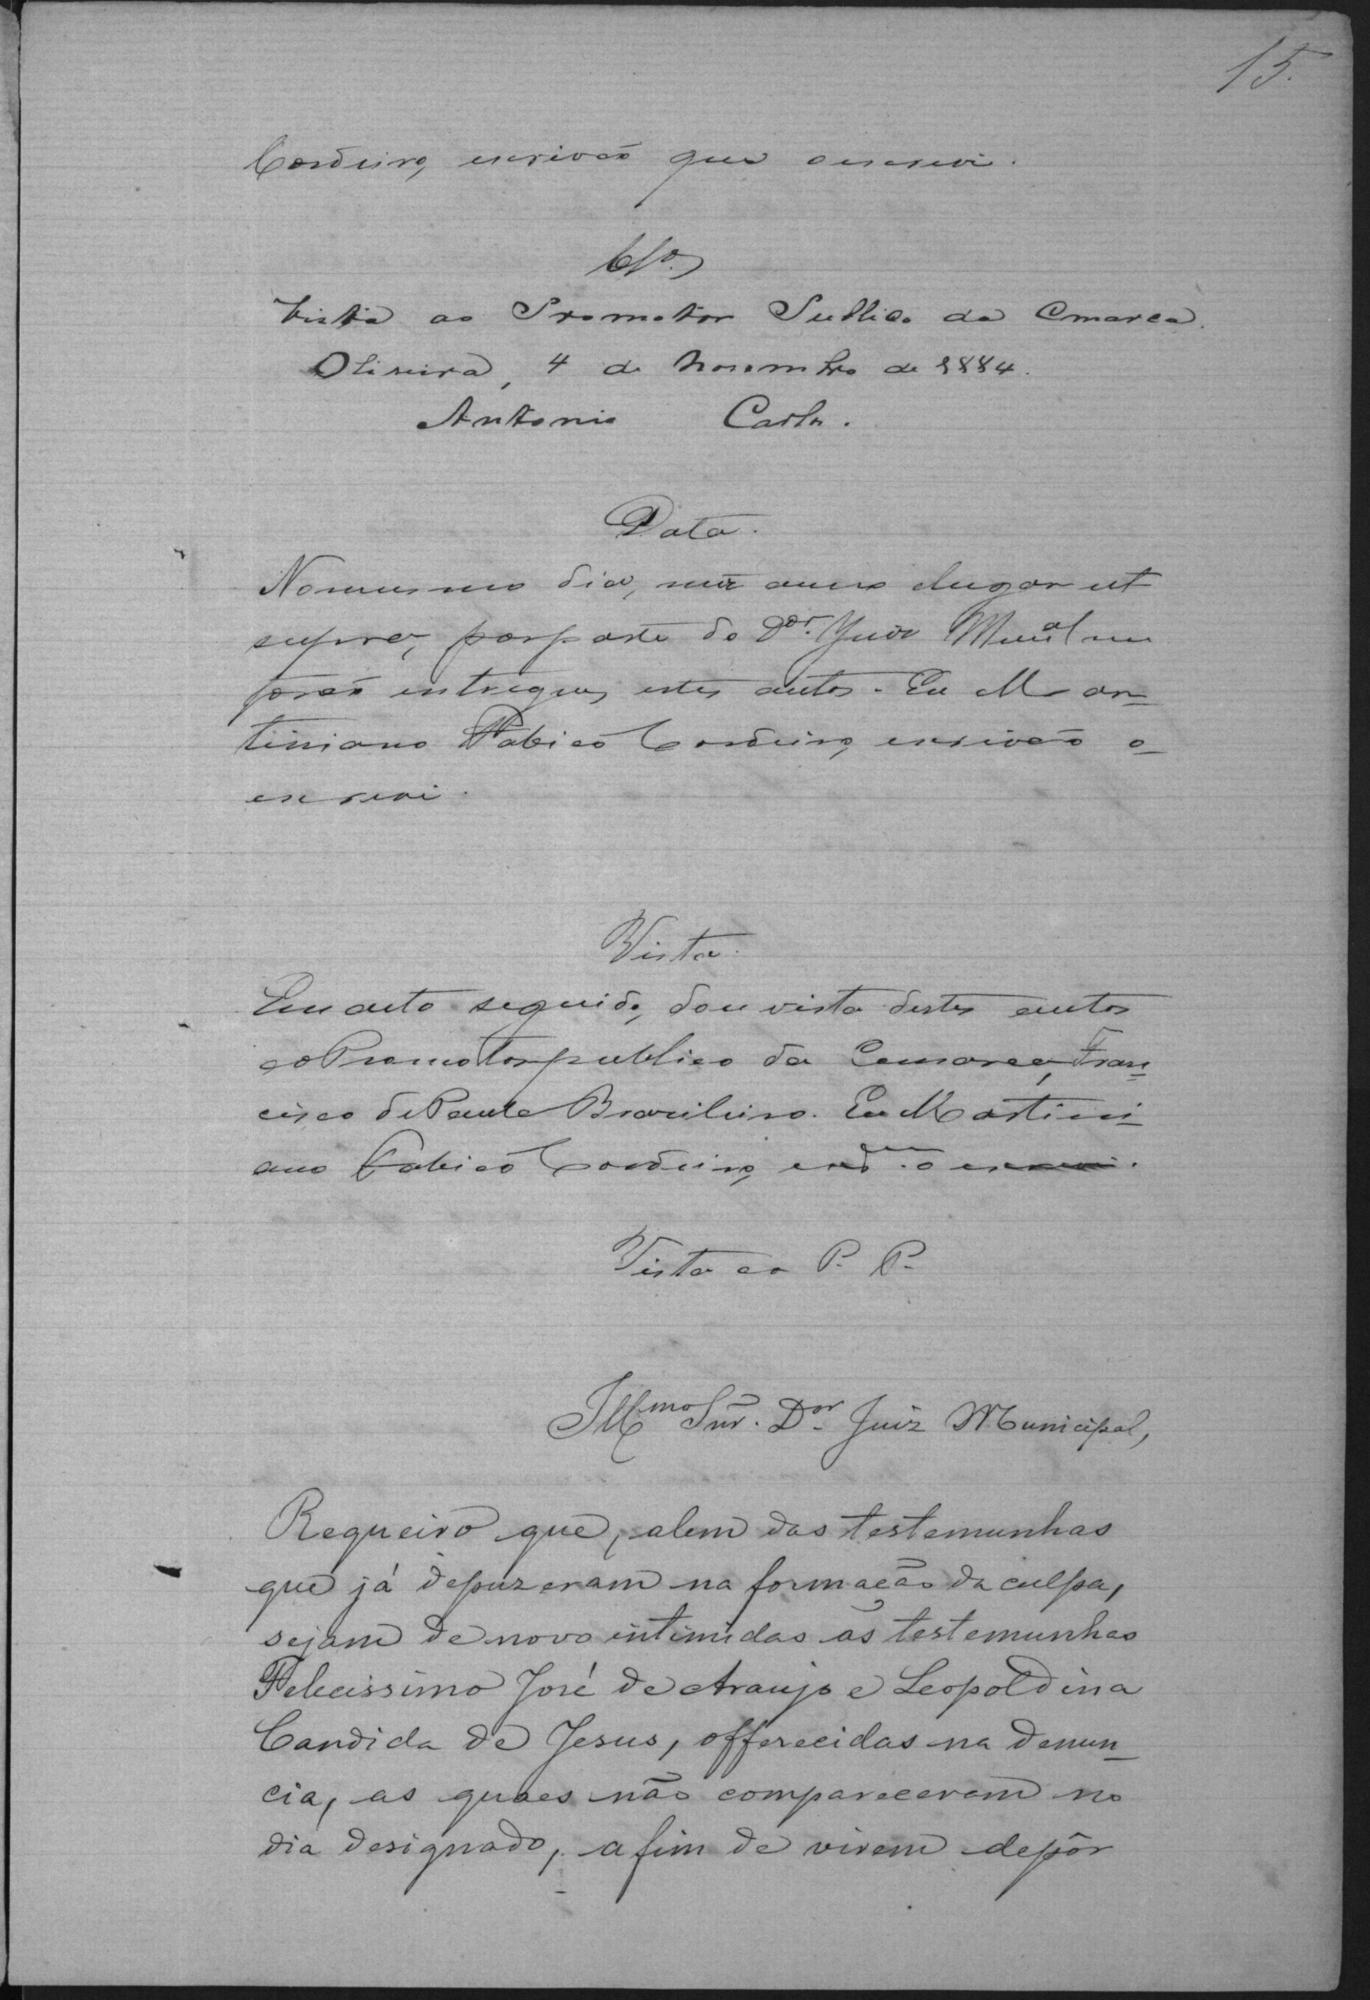 15.
Cordeiro, escrivão que o escrevi.
Clos.
Vista ao Promotor Publico da Comarca.
Oliveira, 4 de Novembro de 1884.
Antonio Carlos.
Data.
No mesmo dia, mez anno e lugar ut
supra, por parte do Dor. Juiz Municipal me
forão entregues estes autos. Eu Mar-
tiniano Fabicio Cordeiro, escrivão o
escrevi.
Vista.
Em acto seguido, dou vista destes autos
ao Promotor publico da Comarca, Fran-
cisco de Paula Brasileiro. Eu Martini-
ano Fabicio Cordeiro, o escrevi.
Vista ao P. P.
Illmo Snr. Dor Juiz Municipal,
Requeiro que, alem das testemunhas
que já depuzeram na formação da culpa,
sejam de novo intimidas as testemunhas
Felicissimo José de Araujo e Leopoldina
Candida de Jesus, offerecidas na denun-
cia, as quaes não compareceram no
dia designado, afim de virem depôr